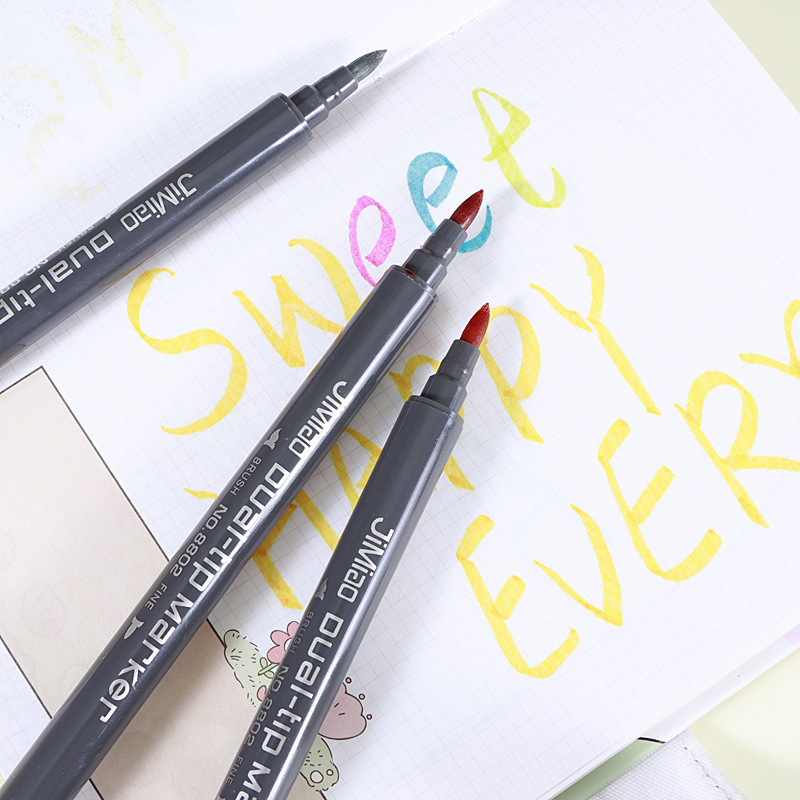 Sweet
HAPPY
EVERY
JiMiao Dual-tip
BRUSH NO.88
JiMiao Dual-tip Marker
BRUSH NO.8802 FINE
JiMiao Dual-tip Ma
BRUSH NO.8802 FINE